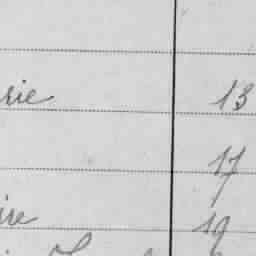 rie 13
17
ire 19